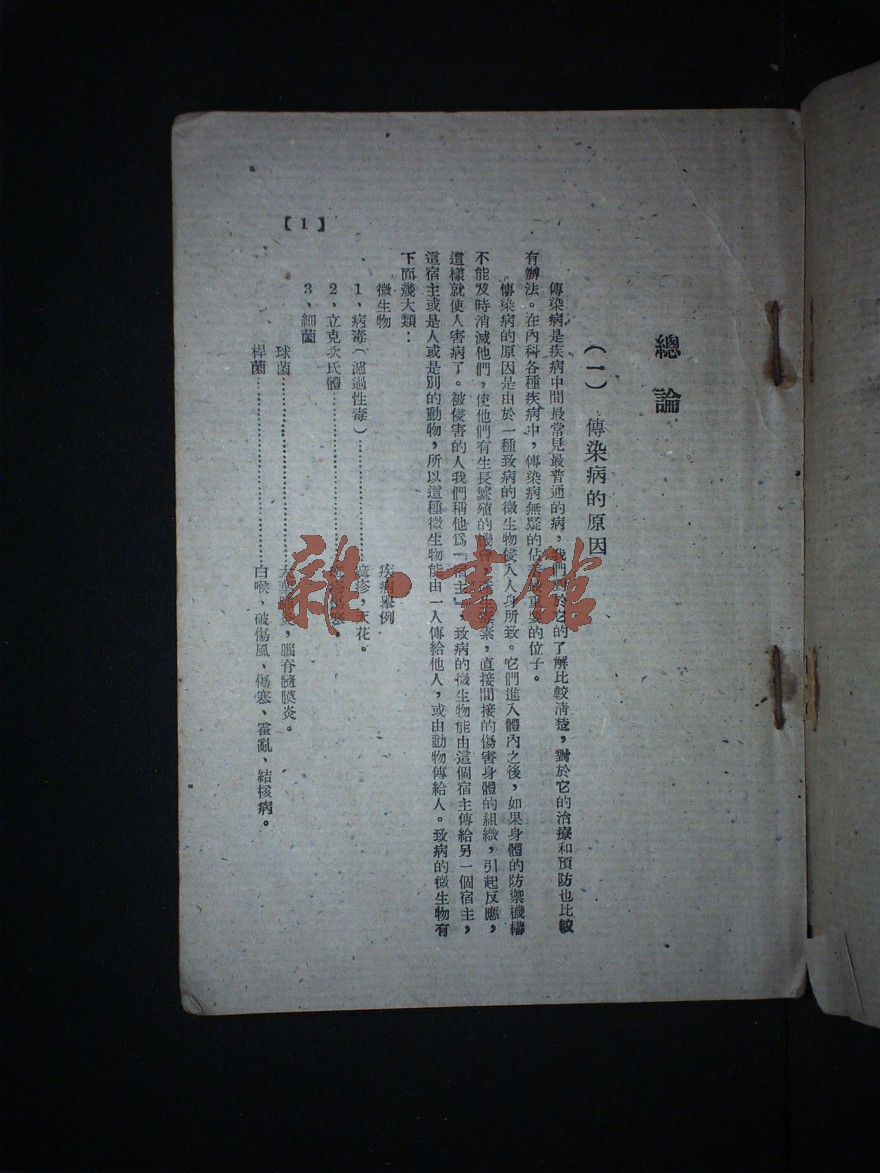 總論
(一) 傳染病的原因
傳染病是疾病中間最常見最普通的病，我們對於它的了解比較清楚，對於它的治療和預防也比較
有辦法。在內科各種疾病中，傳染病無疑的佔着最重要的位子。
傳染病的原因是由於一種致病的微生物侵入人身所致。它們進入體內之後，如果身體的防禦機構
不能及時消滅他們，使他們有生長繁殖的機會，產生毒素，直接間接的傷害身體的組織，引起反應，
這樣就使人害病了。被侵害的人我們稱他爲「宿主」，致病的微生物能由這個宿主傳給另一個宿主，
這宿主或是人或是別的動物，所以這種微生物能由一人傳給他人，或由動物傳給人。致病的微生物有
下面幾大類：
微生物 疾病舉例
1、病毒(濾過性毒)……………痲疹，天花。
2、立克次氏體……………傷寒。
3、細菌
球菌……………大葉肺炎，腦脊髓膜炎。
桿菌……………白喉、破傷風、傷寒、霍亂、結核病。
【1】
雜·書館